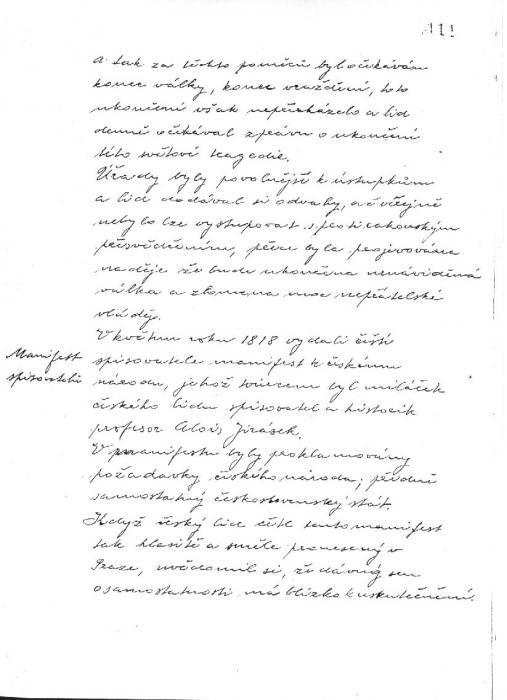 411
a tak za těchto poměrů byl očekáván
konec války, konec vraždění, toto
ukončení však nepřicházelo a lid
denně očekával zprávu o ukončení
této světové tragedie.
Úřady byly povolnější k ústupkům
a lid dodával si odvahy, ač veřejně
nebylo lze vystupovat s protirakouským
přesvědčením, přece byla projevována
naděje že bude ukončena nenáviděná
válka a zlomena moc nepřátelské
vlády.
V květnu roku 1818 vydali čeští
Manifest
spisovatelů
spisovatelé manifest k českému
národu, jehož tvůrcem byl miláček
českého lidu spisovatel a historik
profesor Alois Jirásek.
V manifestu byly proklamovány
požadavky českého národa; původně
samostatný československý stát.
Když český lid četl tento manifest
tak hlasitě a směle pronesený v
Praze, uvědomil si, že dávný sen
o samostatnosti má blízko k uskutečnění.